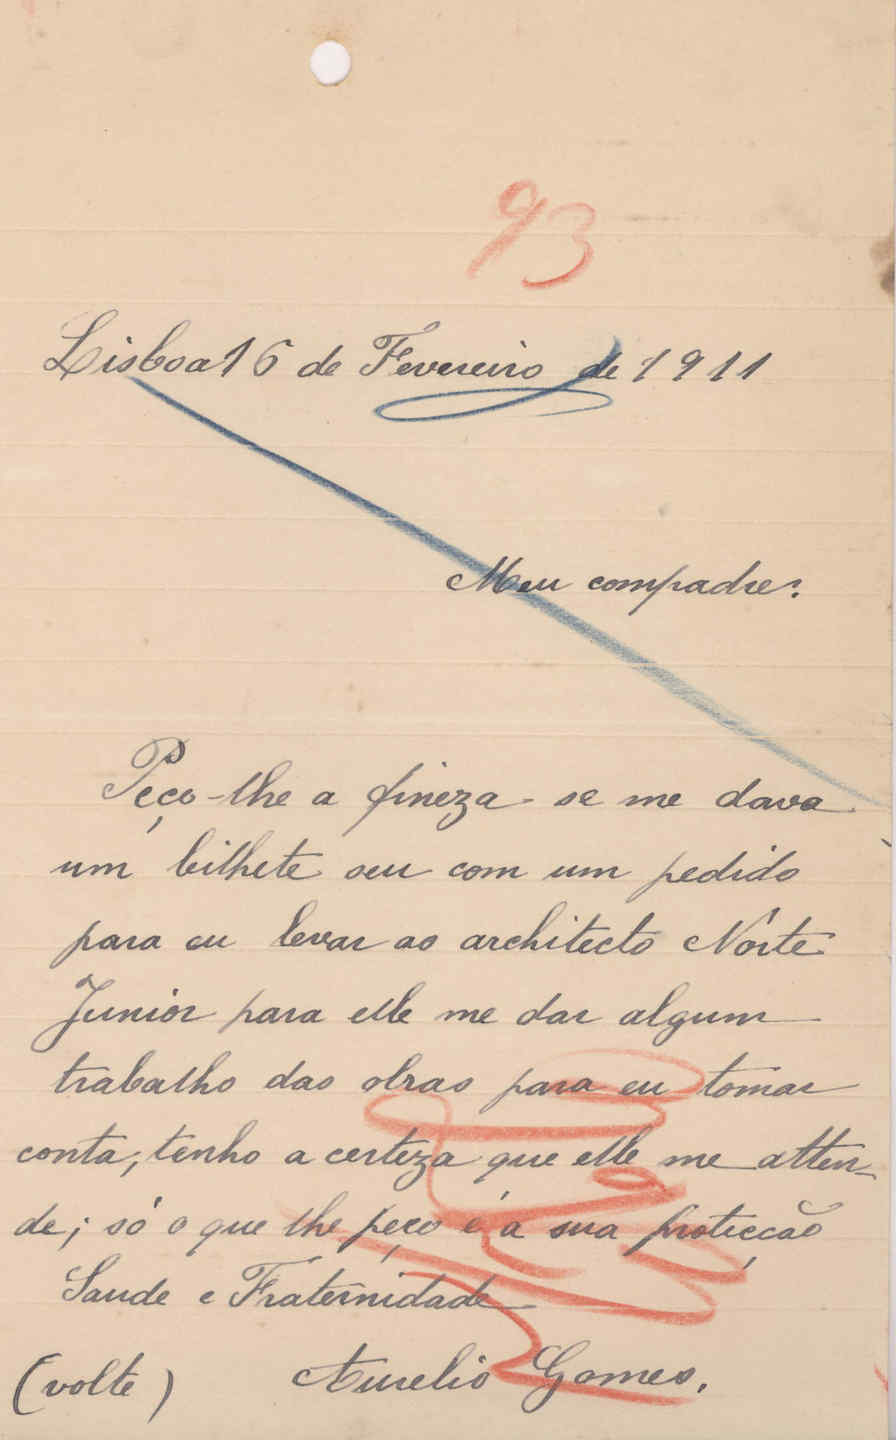 93
Lisboa 16 de Fevereiro de 1911
Meu compadre:
Peço-lhe a fineza se me dava
um bilhete seu com um pedido
para eu levar ao architecto Nórte
Junior para elle me dar algum
trabalho das obras para eu tomar
conta, tenho a certeza que elle me atten-
de; só o que lhe peço é a sua protecção
Saude e Fraternidade
(volte) Aurelio Gomes.